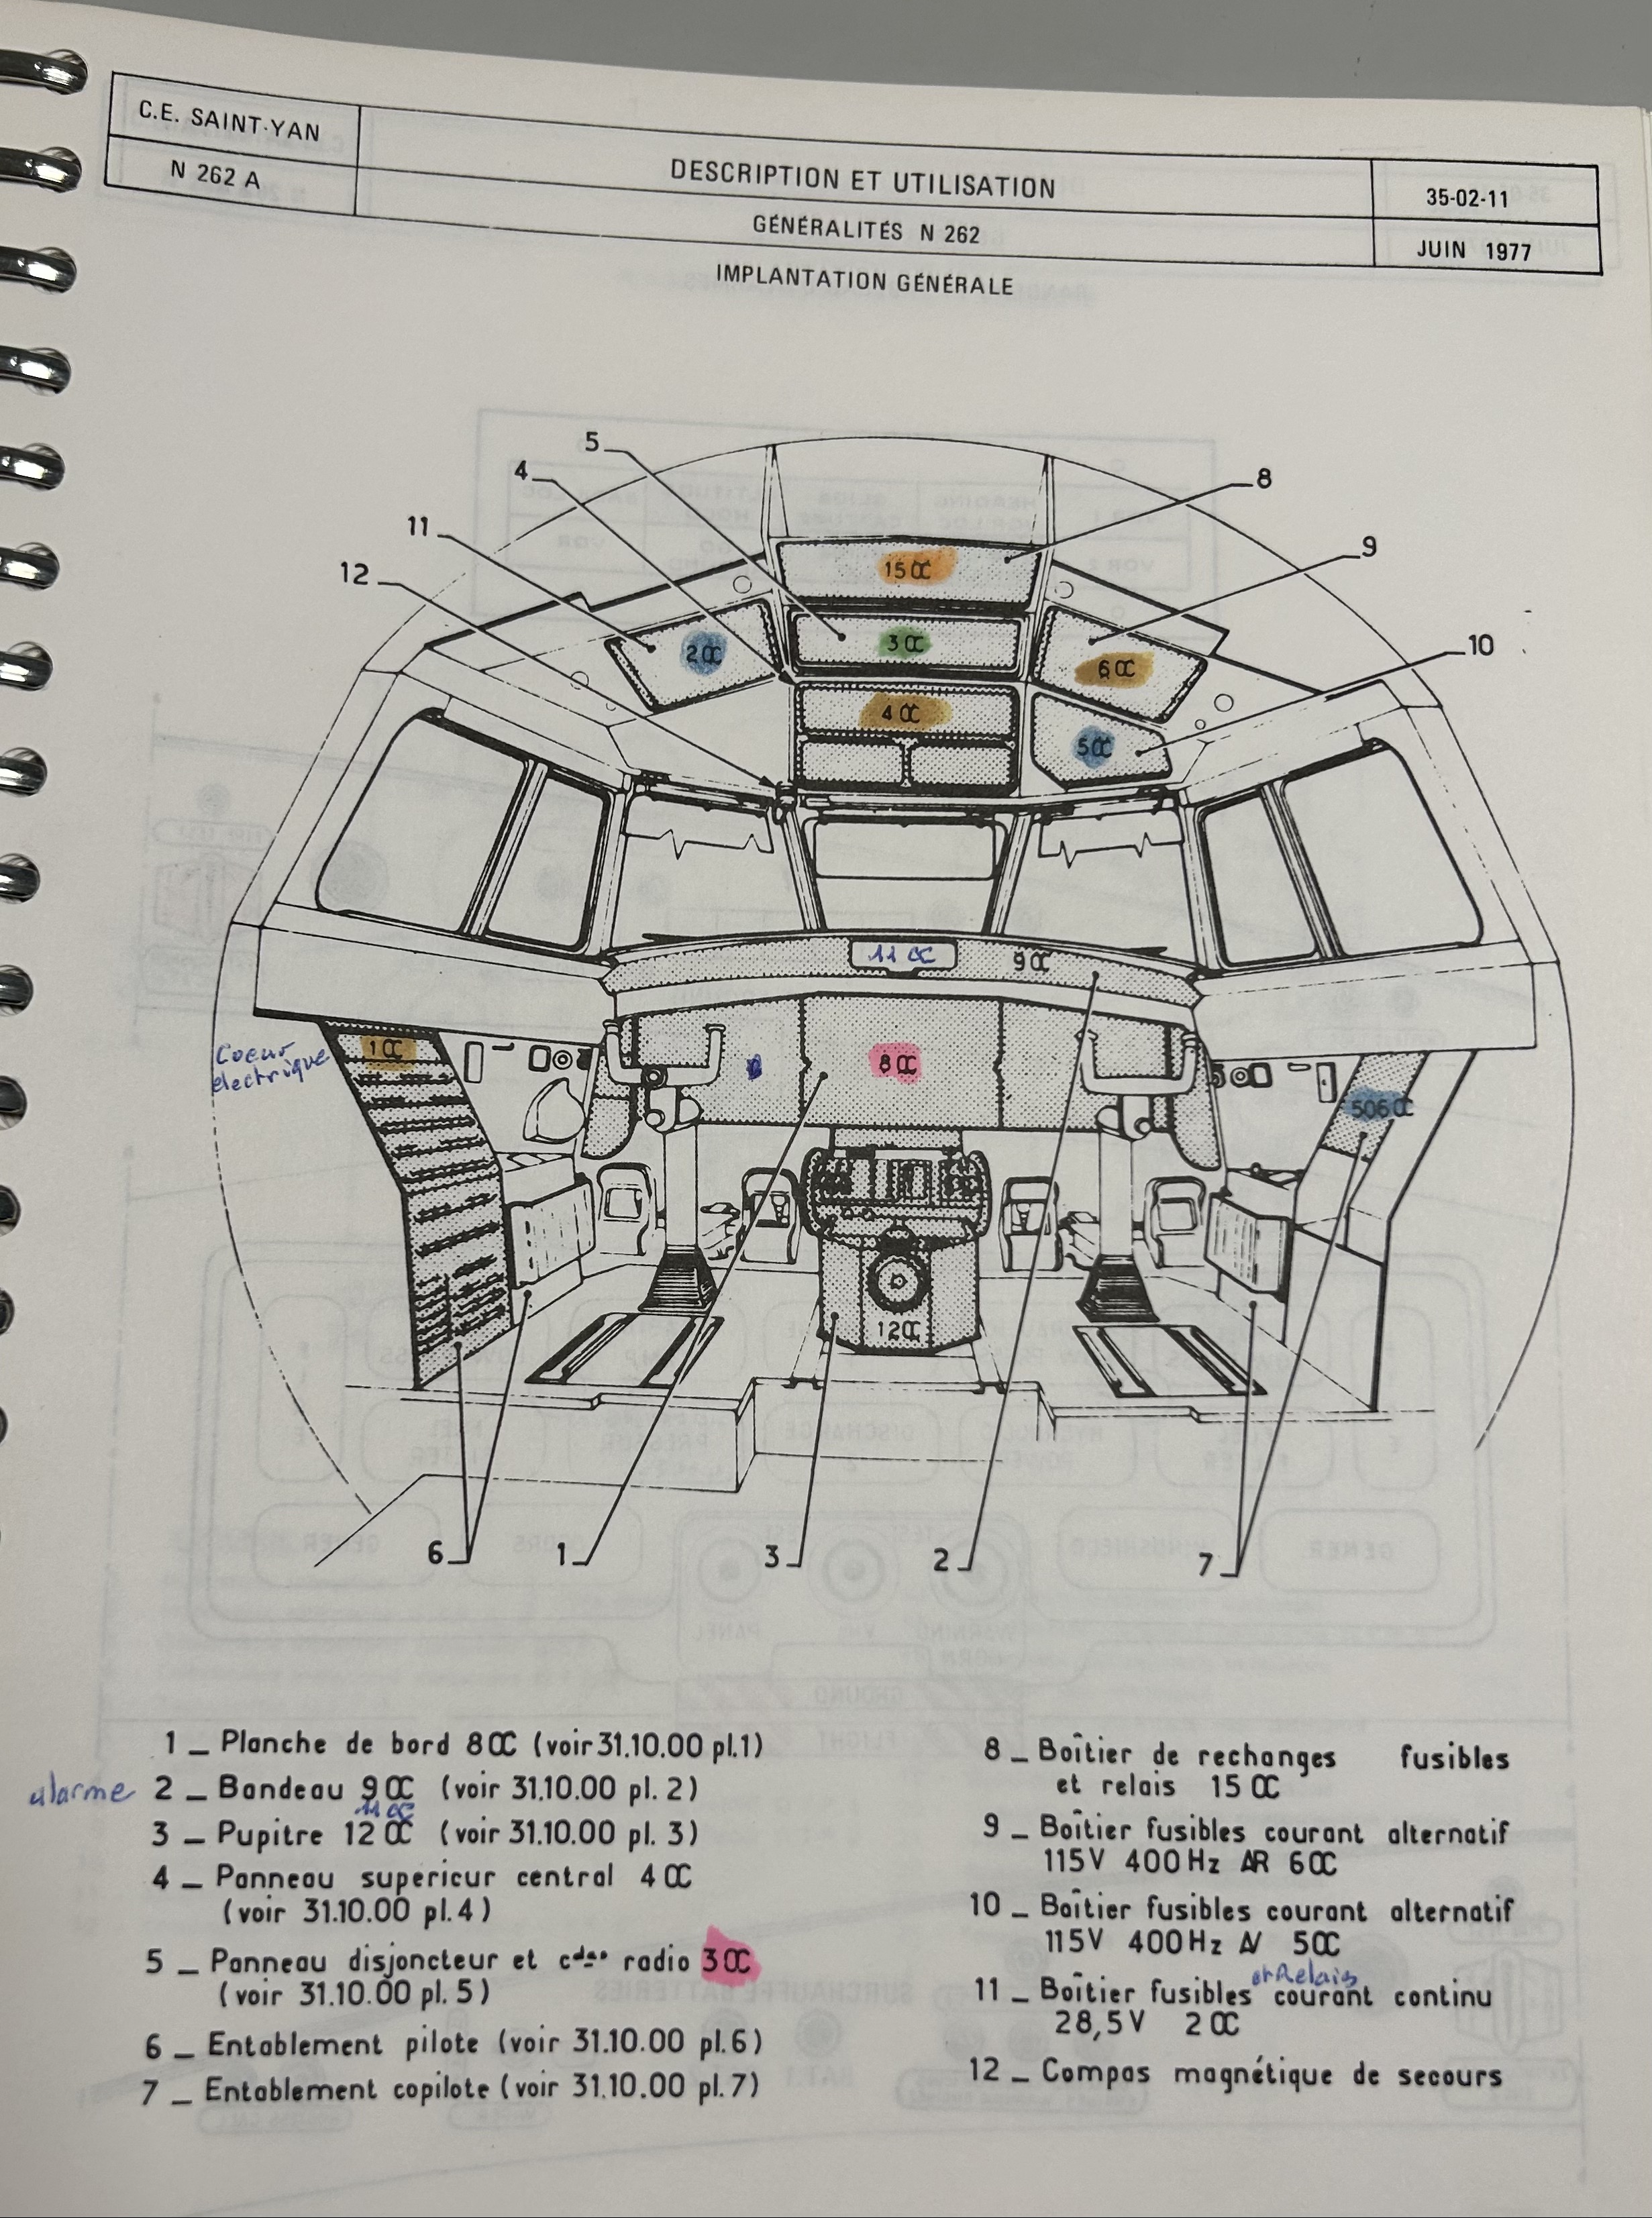 C.E. SAINT-YAN
N 262 A
DESCRIPTION ET UTILISATION
GÉNÉRALITÉS N 262
35-02-11
JUIN 1977
IMPLANTATION GÉNÉRALE
5
4
11
12
8
9
10
15 CC
3 CC
2 CC
6 CC
4 CC
5 CC
11 CC
9 CC
Coeur
électrique
1 CC
8 CC
506 CC
12 CC
6
1
3
2
7
1 _ Planche de bord 8 CC (voir 31.10.00 pl.1)
alarme 2 _ Bandeau 9 CC (voir 31.10.00 pl. 2)
11 CC
3 _ Pupitre 12 CC (voir 31.10.00 pl. 3)
4 _ Panneau superieur central 4 CC
(voir 31.10.00 pl.4)
5 _ Panneau disjoncteur et cdes radio 3 CC
(voir 31.10.00 pl. 5)
6 _ Entablement pilote (voir 31.10.00 pl.6)
7 _ Entablement copilote (voir 31.10.00 pl.7)
8 _ Boîtier de rechanges fusibles
et relais 15 CC
9 _ Boîtier fusibles courant alternatif
115V 400Hz AR 6 CC
10 _ Boîtier fusibles courant alternatif
115V 400Hz AV 5 CC
et Relais
11 _ Boîtier fusibles courant continu
28,5V 2 CC
12 _ Compas magnétique de secours